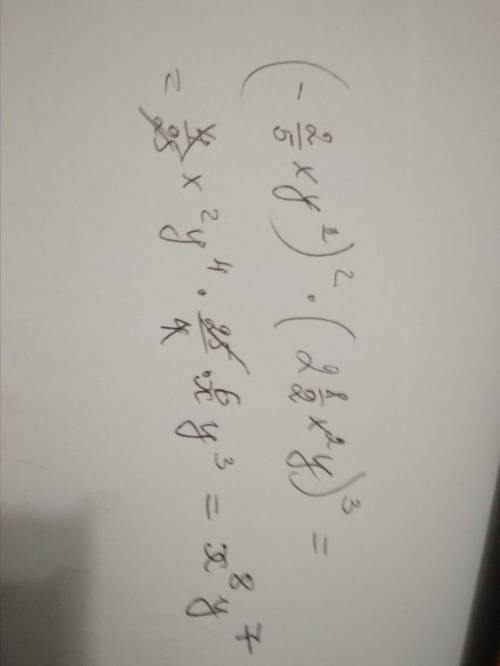 (-2/5 xy²)² · (2 1/2 x²y)³ =
= 4/25 x²y⁴ · 25/4 · x⁶y³ = x⁸y⁷